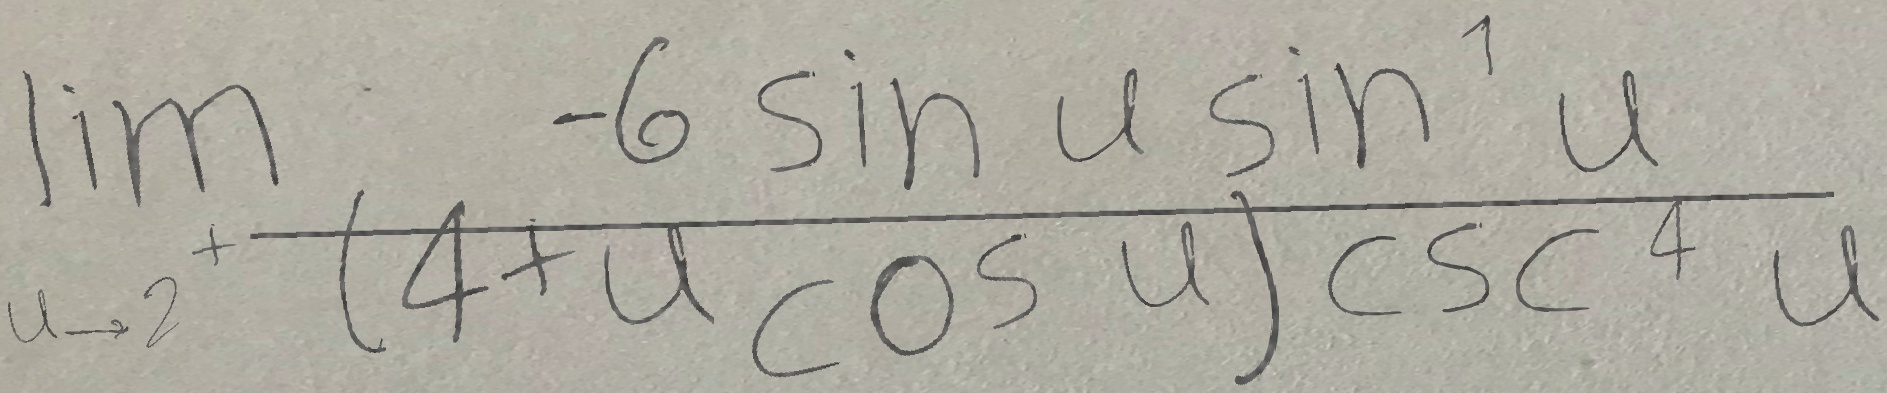 \lim_{u \to 2^+} \frac{-6 \sin u \sin^1 u}{(4 + u \cos u) \csc^4 u}